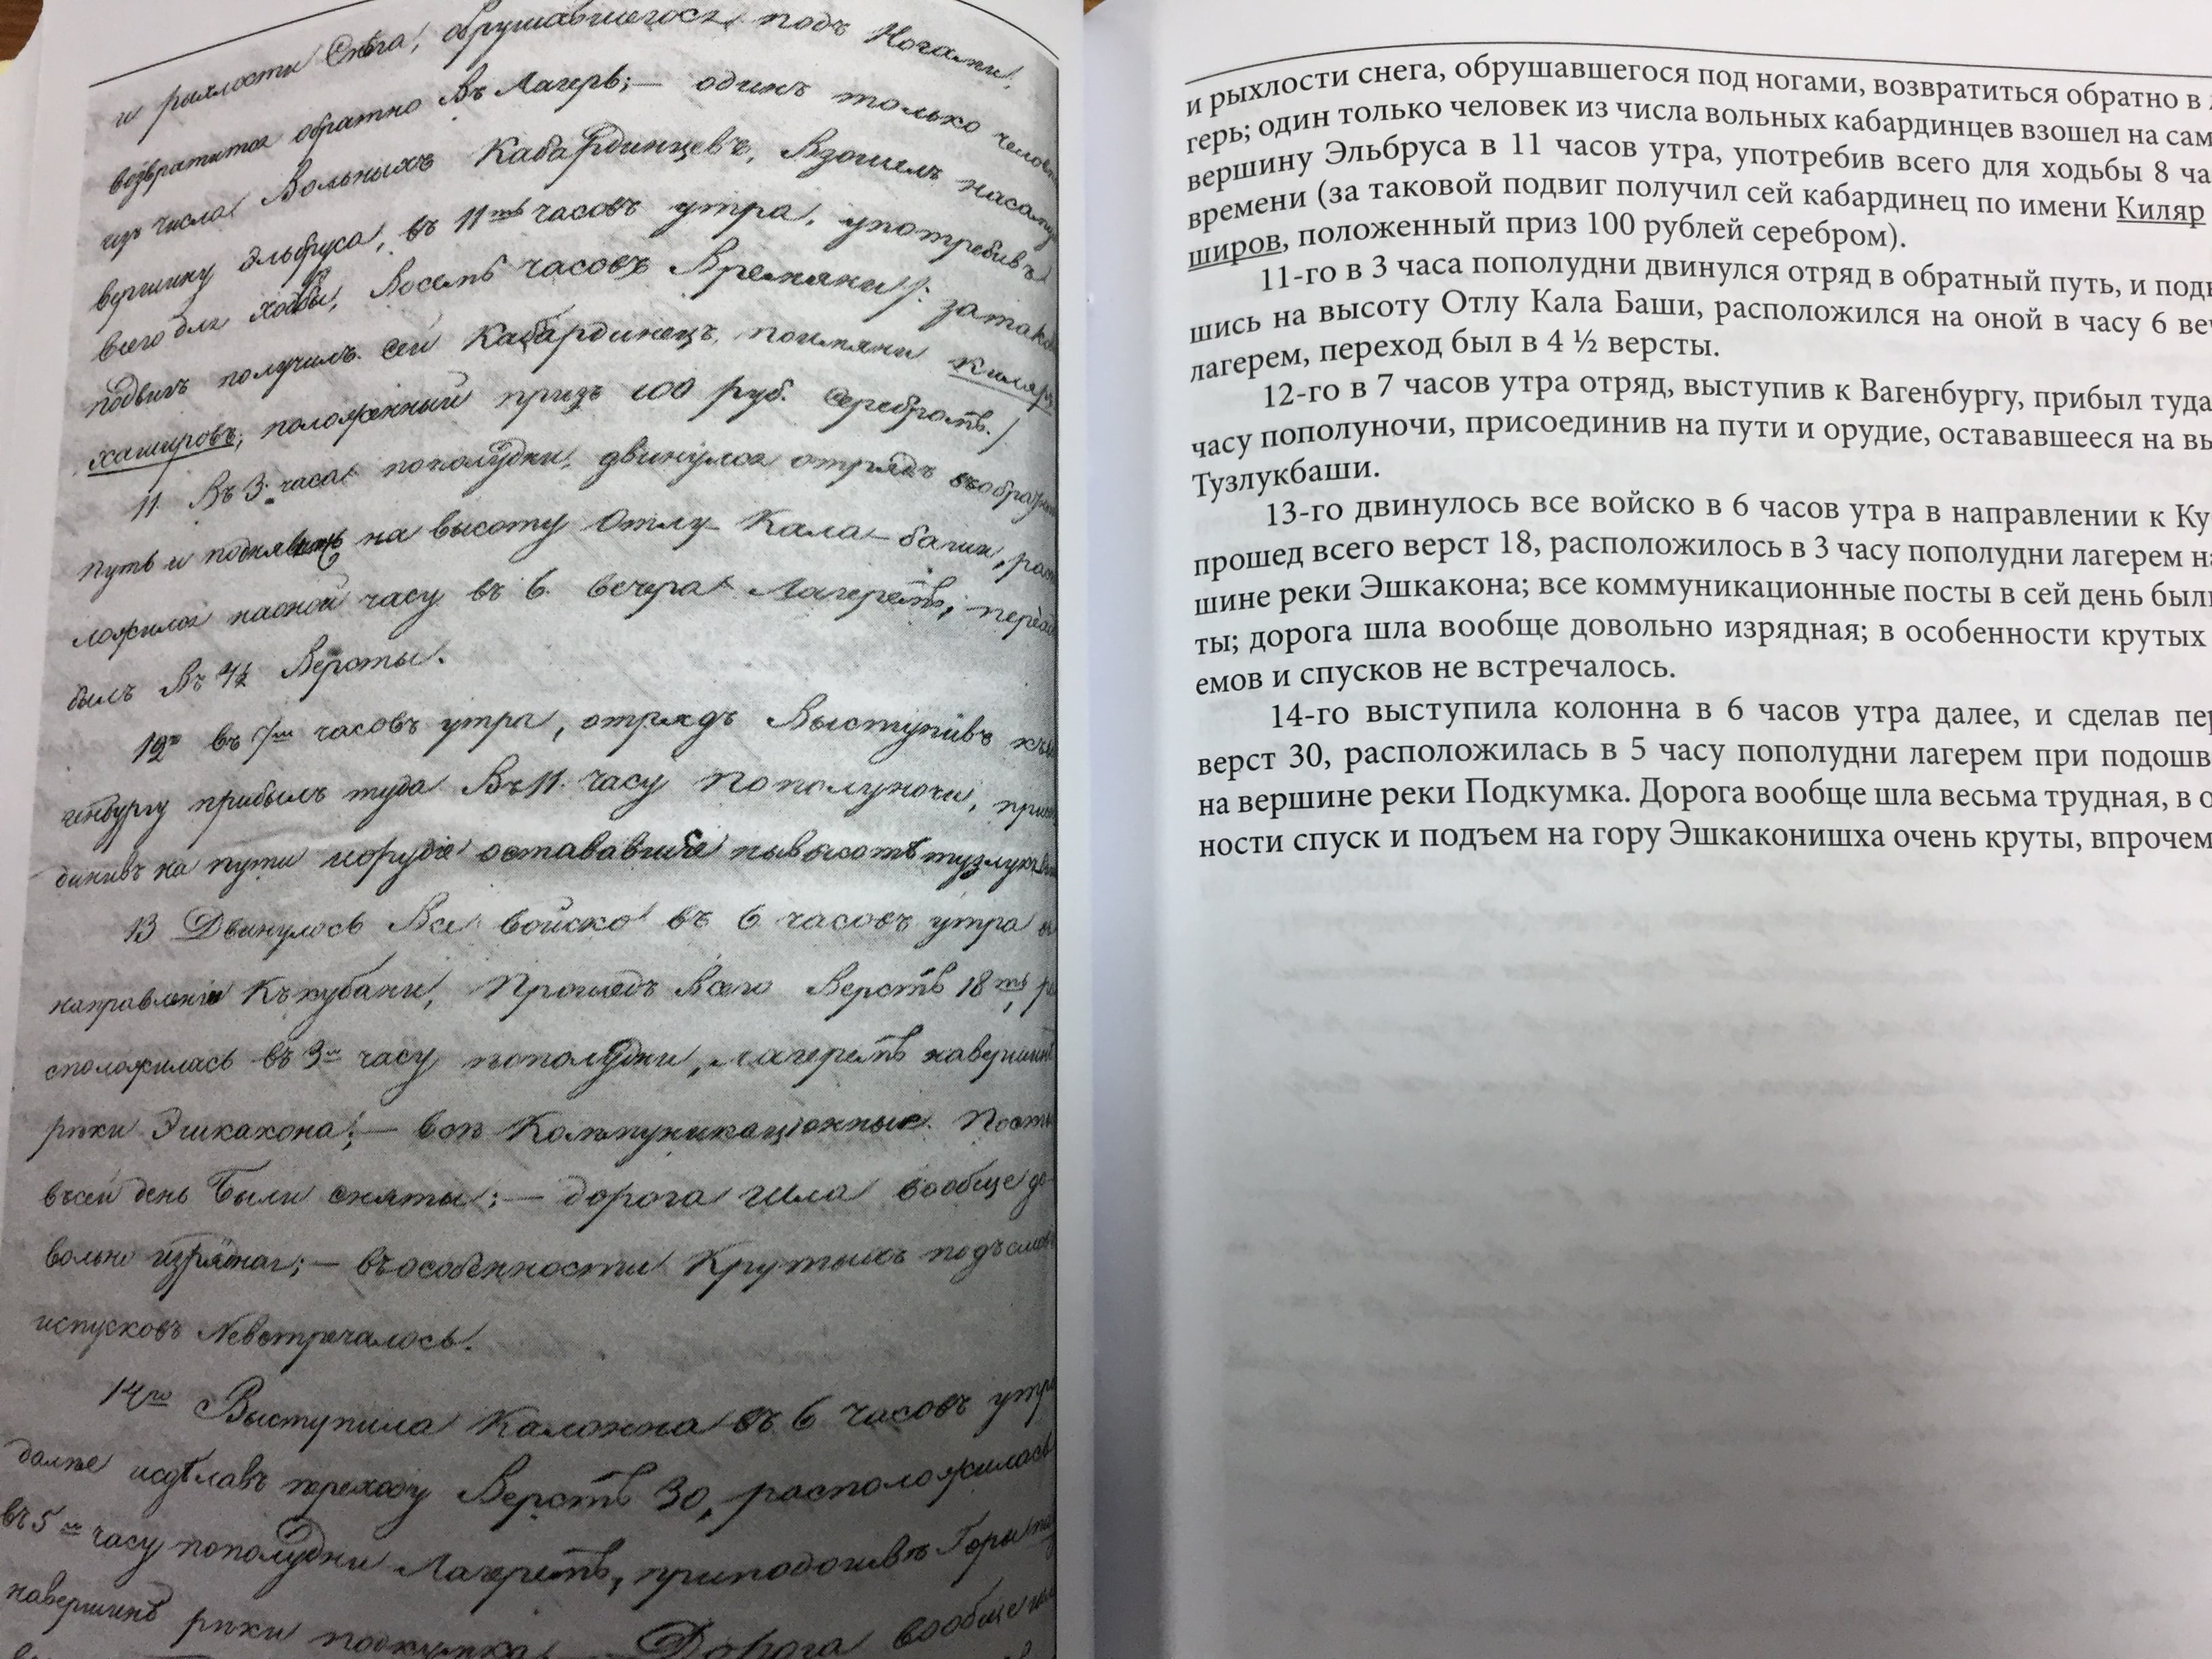 и рыхлости Снѣга, обрушавшегося подъ Ногами,
возвратится обратно въ Лагерь; — одинъ только
изъ числа Вольныхъ Кабардинцевъ, Взошелъ насаму
вершину Эльбруса, въ 11ть часовъ утра, употребивъ
всего для ходьбы, Восемь часовъ Времяни /: за
подвигъ получилъ сей Кабардинецъ, поимяни Киляръ
хашировъ, положенный призъ 100 руб. Серебромъ. /
11 Въ 3 часа пополудни, двинулся отрядъ
путь и на высоту Отлу Кала-баши,
ложился наоной часу въ 6 вечера Лагеремъ,
былъ Въ 4½ Версты.
12го въ 7мъ часовъ утра, отрядъ Выступивъ
генбургу прибылъ туда Въ 11 часу Пополуночи,
динивъ на пути иорудіе остававшиеся
13 Двинулось Все войско въ 6 часовъ утра
направленіи Къ кубани, Прошедъ Всего Верстъ 18ть
сположилась въ 3мъ часу пополудни, лагеремъ навершинѣ
рѣки Эшкакона; — всѣ Коммуникаціонные Посты
въсей день были сняты; — дорога шла вообще до
вольно изрядная; — въособенности Крутыхъ
испусковъ Невстречалось.
14го Выступила Калонна въ 6 часовъ
далѣе исдѣлавъ переходу Верстъ 30, расположилась
въ 5мъ часу пополудни Лагеремъ, приподошвѣ Горы
навершинѣ рѣки подкумка Дорога вообще
и рыхлости снега, обрушавшегося под ногами, возвратиться обратно в
герь; один только человек из числа вольных кабардинцев взошел на сам
вершину Эльбруса в 11 часов утра, употребив всего для ходьбы 8 ча
времени (за таковой подвиг получил сей кабардинец по имени Киляр
широв, положенный приз 100 рублей серебром).
11-го в 3 часа пополудни двинулся отряд в обратный путь, и подн
шись на высоту Отлу Кала Баши, расположился на оной в часу 6 ве
лагерем, переход был в 4 ½ версты.
12-го в 7 часов утра отряд, выступив к Вагенбургу, прибыл туда
часу пополуночи, присоединив на пути и орудие, остававшееся на вы
Тузлукбаши.
13-го двинулось все войско в 6 часов утра в направлении к Ку
прошед всего верст 18, расположилось в 3 часу пополудни лагерем на
шине реки Эшкакона; все коммуникационные посты в сей день были
ты; дорога шла вообще довольно изрядная; в особенности крутых
емов и спусков не встречалось.
14-го выступила колонна в 6 часов утра далее, и сделав пер
верст 30, расположилась в 5 часу пополудни лагерем при подошв
на вершине реки Подкумка. Дорога вообще шла весьма трудная, в о
ности спуск и подъем на гору Эшкаконишха очень круты, впрочем